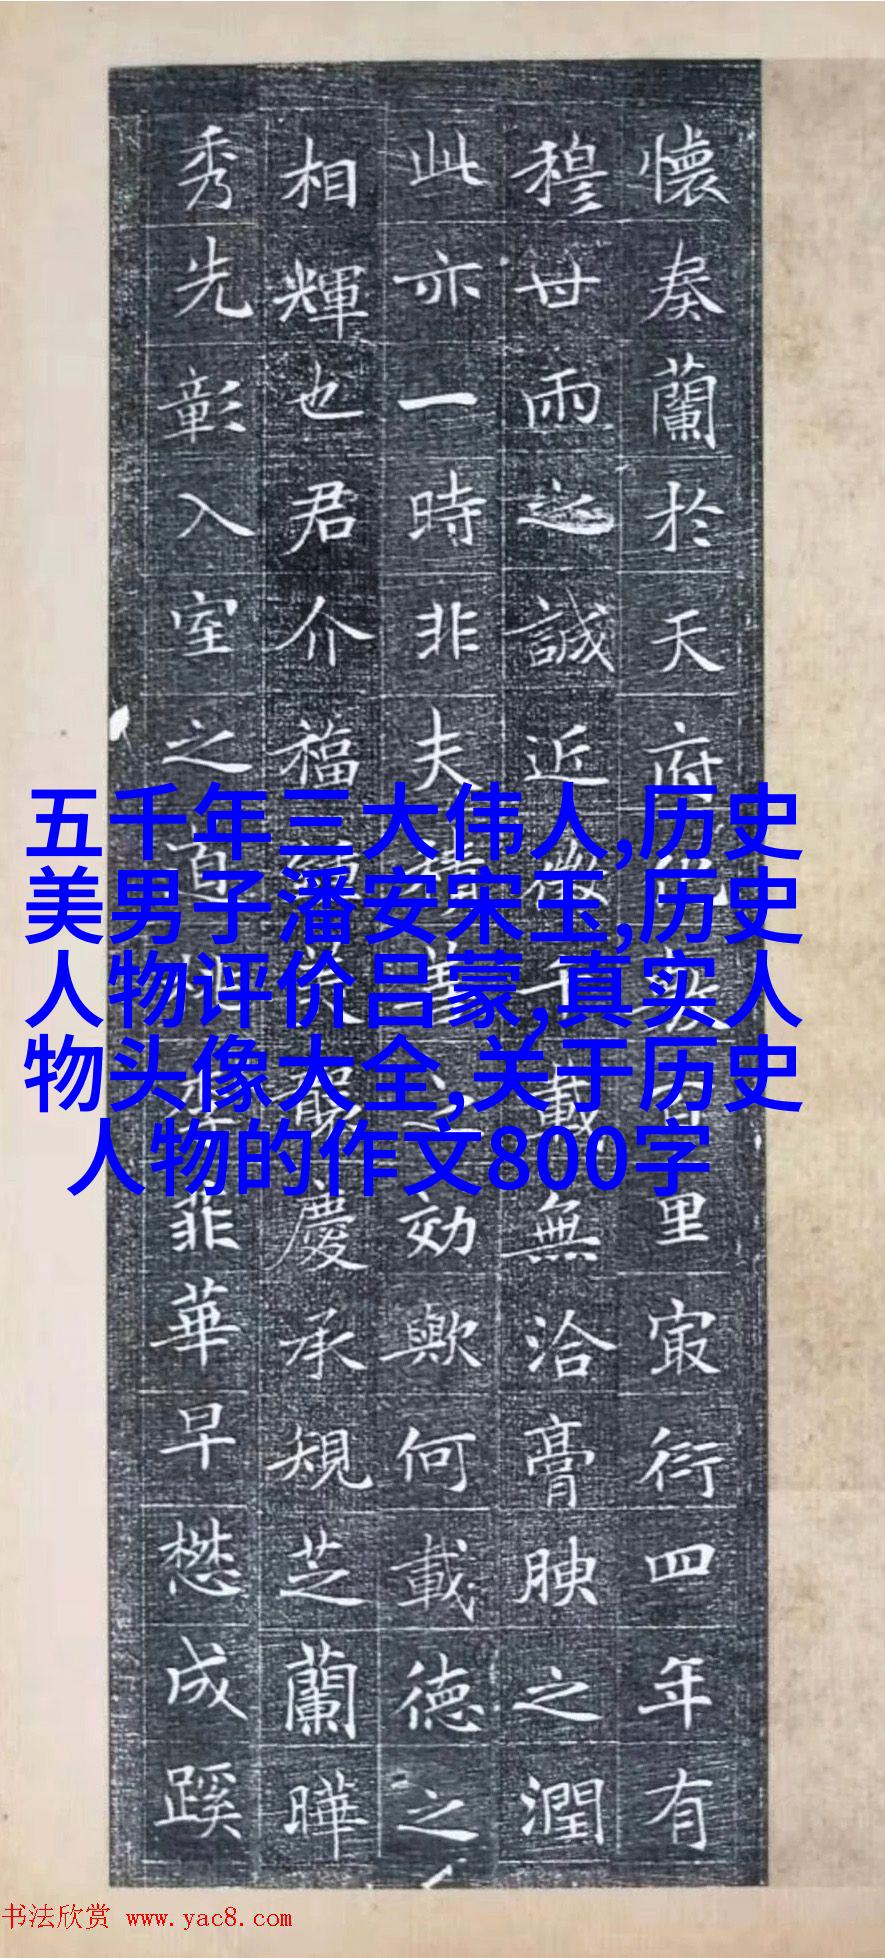 懷奏蘭於天府里冣衍四年有
穆世雨之誠近載無洽膏腴之潤
此亦一時非夫積善之効歟何載德之
相輝也君介福慶承規芝蘭曄
秀先彰入室之李菲華早懋成蹊
五千年三大伟人,历史
美男子潘安宋玉,历史
人物评价吕蒙,真实人
物头像大全,关于历史
人物的作文800字
书法欣赏 www.yac8.com